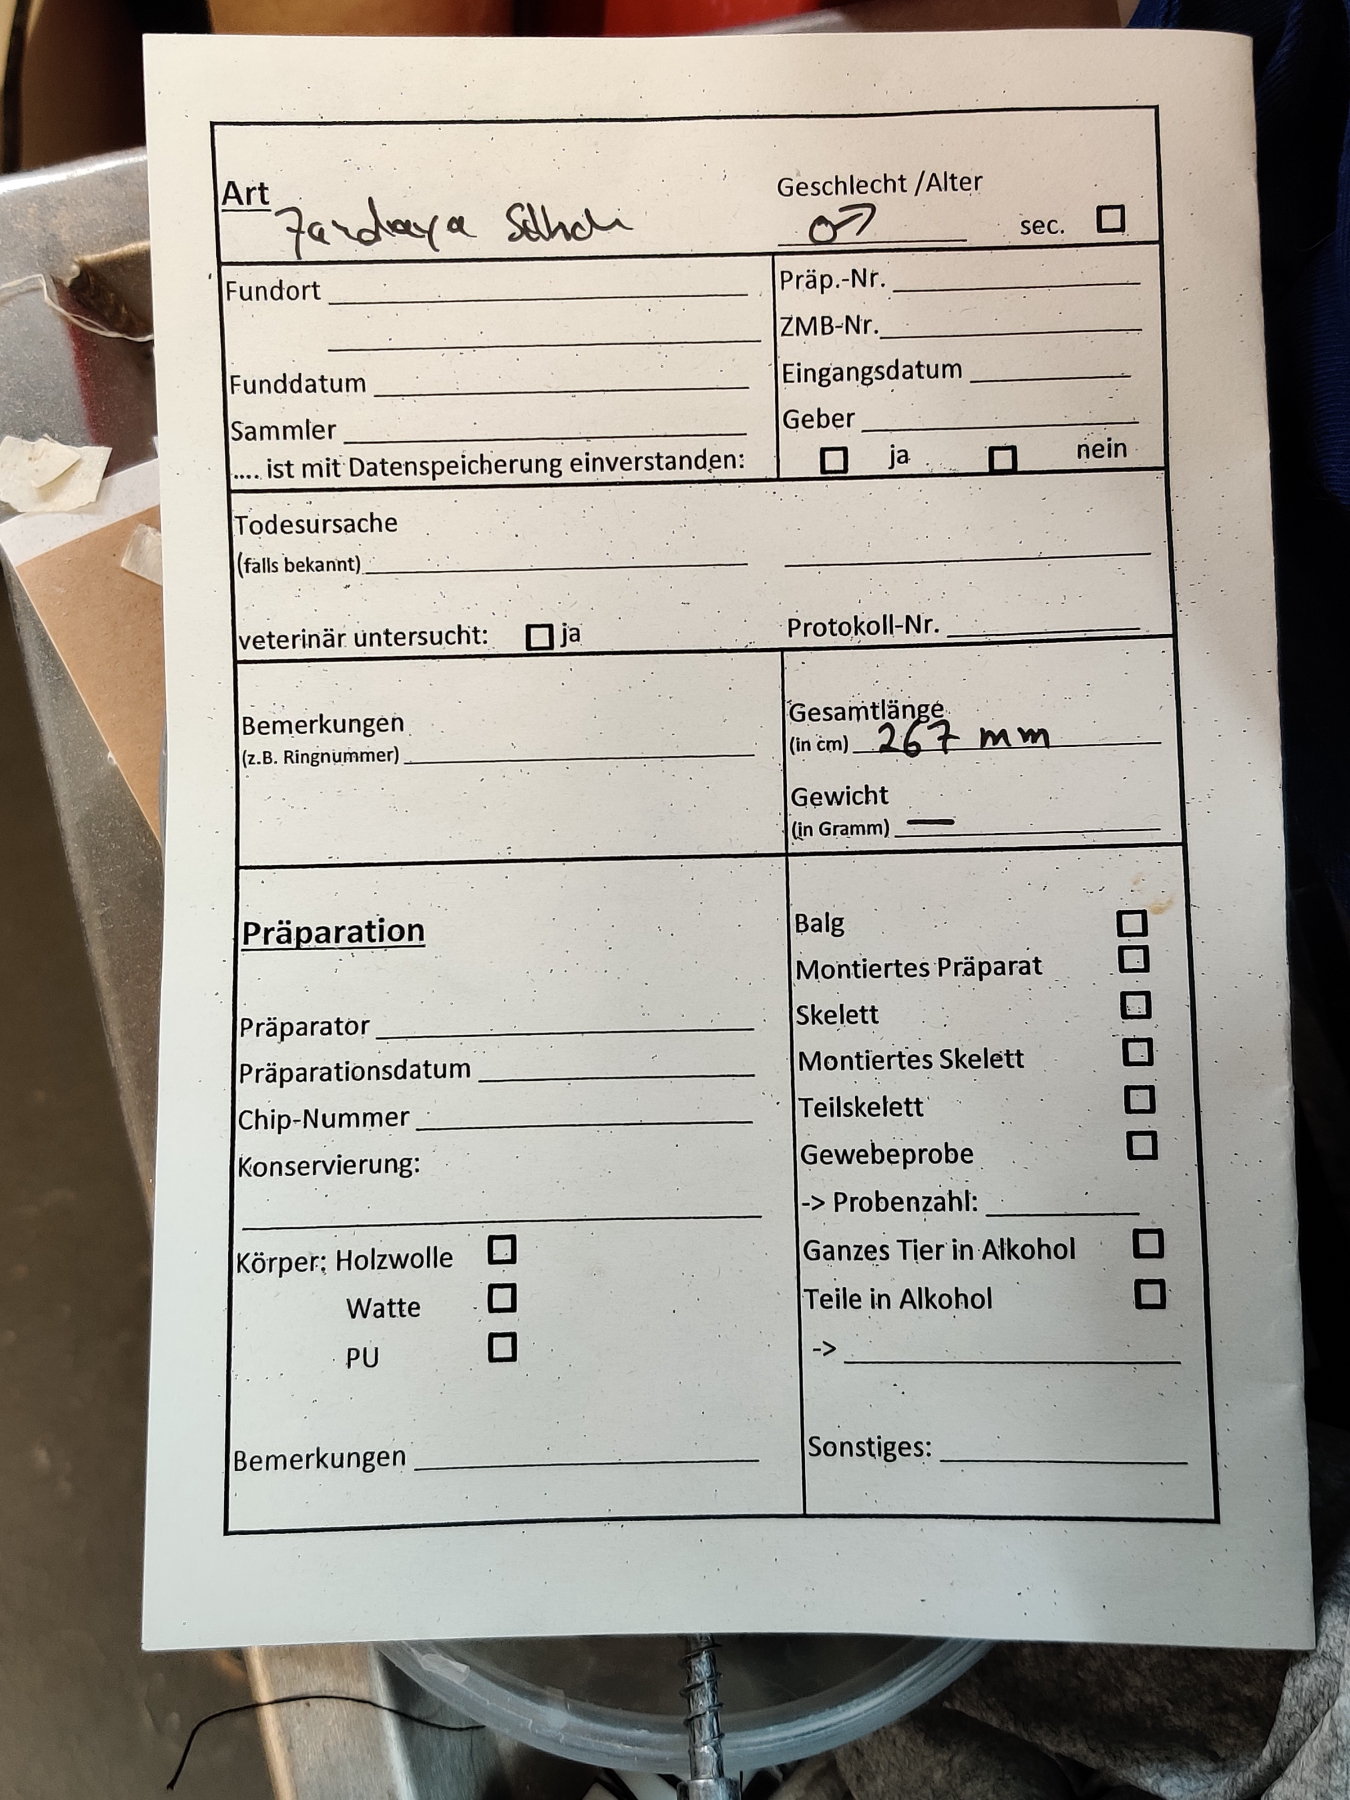 Art Jandaya Sittich
Geschlecht /Alter
♂
sec.
Fundort
Präp.-Nr.
ZMB-Nr.
Funddatum
Eingangsdatum
Sammler
Geber
.... ist mit Datenspeicherung einverstanden:
ja
nein
Todesursache
(falls bekannt)
veterinär untersucht:
ja
Protokoll-Nr.
Bemerkungen
(z.B. Ringnummer)
Gesamtlänge
(in cm) 267 mm
Gewicht
(in Gramm) —
Präparation
Präparator
Präparationsdatum
Chip-Nummer
Konservierung:
Körper: Holzwolle
Watte
PU
Bemerkungen
Balg
Montiertes Präparat
Skelett
Montiertes Skelett
Teilskelett
Gewebeprobe
-> Probenzahl:
Ganzes Tier in Alkohol
Teile in Alkohol
->
Sonstiges: